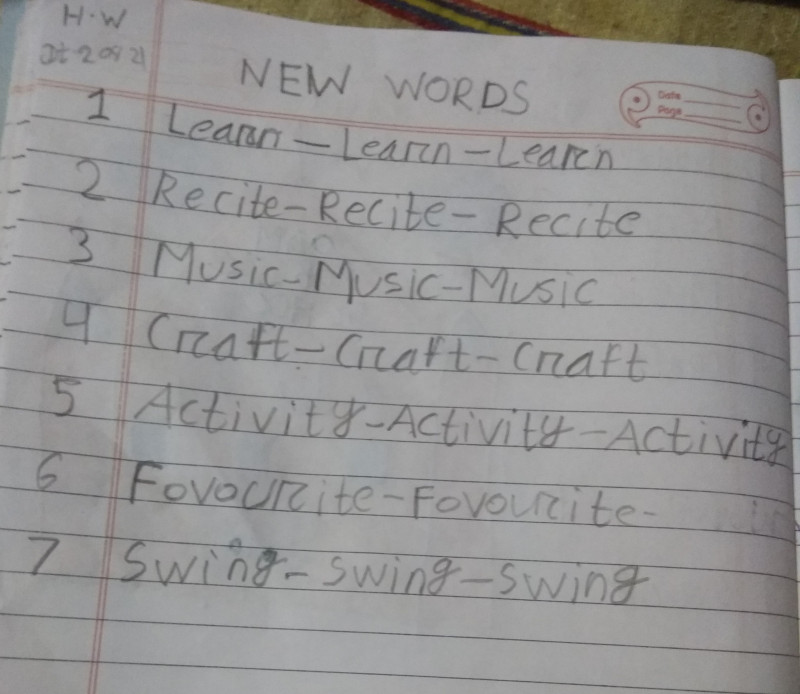 H.W
Dt 2 09 21
NEW WORDS
Date
Page
1 Learn - Learn - Learn
2 Recite - Recite - Recite
3 Music - Music - Music
4 Craft - Craft - Craft
5 Activity - Activity - Activity
6 Fovourite - Fovourite -
7 Swing - Swing - Swing